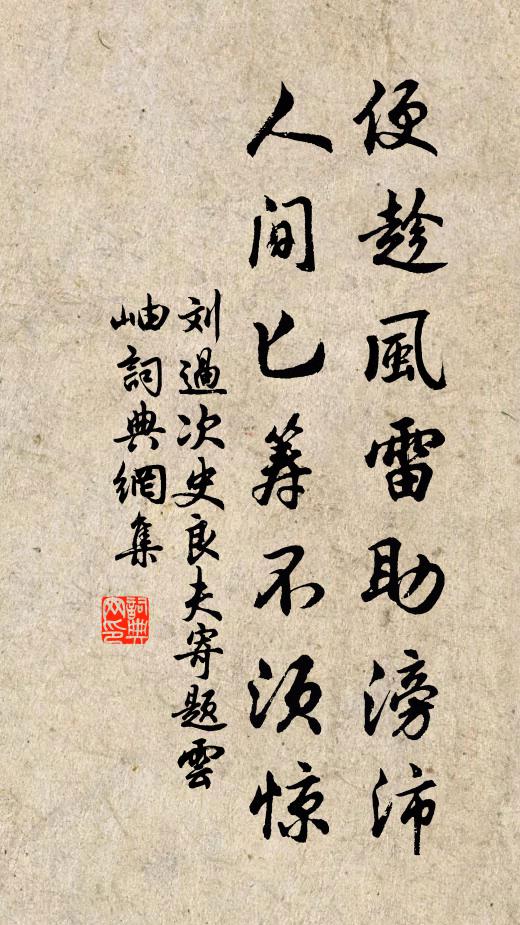 便趁風雷助滂沛
人间匕筹不须惊
刘過次史良夫寄题雲
岫詞典網集
詞典
网印